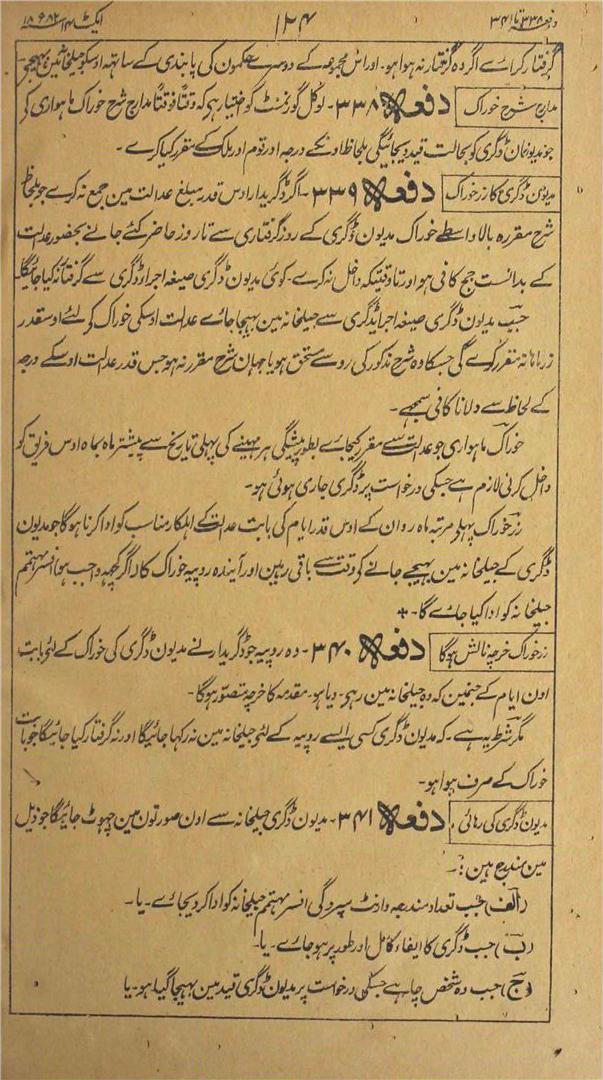 دفعہ ۳۳۸ تا ۳۴۱
۱۲۴
ایکٹ ۱۴ ۱۸۸۲ء
گرفتار کرائے اگر وہ گرفتار نہ ہوا ہو۔ اور اس مجموعہ کے دوسرے حکمون کی پابندی کے ساتھہ اوسکو جیلخانہ مین بھیجے۔
مدارج شرح خوراک
دفعہ ۳۳۸۔ لوکل گورنمنٹ کو اختیار ہی کہ وقتاً فوقتاً مدارج شرح خوراک ماہواری کی
جو مدیونان ڈگری کو بحالت قید دیجائیگی بلحاظ اونکے درجہ اور قوم اور ملک کے مقرر کیا کرے۔
مدیون ڈگری کا زر خوراک
دفعہ ۳۳۹۔ اگر ڈگریدار اوس قدر مبلغ عدالت مین جمع نہ کرے جو بلحاظ
شرح مقررہ بالا واسطے خوراک مدیون ڈگری کے روز گرفتاری سے تا روز حاضر کئے جانے بحضور عدالت
کے بدانست جج کافی ہو اور تاوقتیکہ داخل نہ کرے۔ کوئی مدیون ڈگری صیغہ اجرا ڈگری سے گرفتار نہ کیا جائیگا۔
جب مدیون ڈگری صیغہ اجرا ڈگری سے جیلخانہ مین بھیجا جاے عدالت اوسکی خوراک کے لئے اوسقدر
زر ماہانہ مقرر کرے گی جسکا وہ شرح مذکور کی رو سے مستحق ہو یا جہان شرح مقرر نہ ہو جس قدر عدالت اوسکے درجہ
کے لحاظ سے دلانا کافی سمجھے۔
خوراک ماہواری جو عدالت سے مقرر کیجاے بطور پیشگی ہر مہینے کی پہلی تاریخ سے پیشتر ماہ بماہ اوس فریق کو
داخل کرنی لازم ہے جسکی درخواست پر ڈگری جاری ہوئی ہو۔
زر خوراک پہلی مرتبہ ماہ روان کے اوس قدر ایام کی بابت عدالت کے اہلکار مناسب کو ادا کرنا ہوگا جو مدیون
ڈگری کے جیلخانہ مین بھیجے جانے کے وقت سے باقی رہین اور آیندہ روپیہ خوراک کا (اگر کچھہ واجب ہو) افسر مہتمم
جیلخانہ کو ادا کیا جاے گا۔
زر خوراک خرچہ نالش ہوگا
دفعہ ۳۴۰۔ وہ روپیہ جو ڈگریدار نے مدیون ڈگری کی خوراک کے لئے بابت
اون ایام کے جنمین کہ وہ جیلخانہ مین رہی دیا ہو۔ مقدمہ کا خرچہ متصور ہوگا۔
مگر شرط یہ ہے۔ کہ مدیون ڈگری کسی ایسے روپیہ کے لئے جیلخانہ مین نہ رکھا جائیگا اور نہ گرفتار کیا جائیگا جو بابت
خوراک کے صرف ہوا ہو۔
مدیون ڈگری کی رہائی
دفعہ ۳۴۱۔ مدیون ڈگری جیلخانہ سے اون صورتون مین چھوٹ جائیگا جو ذیل
مین مندرج ہین:۔
(الف) جب تعداد مندرجہ وارنٹ سپردگی افسر مہتمم جیلخانہ کو ادا کر دیجاے۔ یا۔
(ب) جب ڈگری کا ایفاء کامل اور طور پر ہو جاے۔ یا۔
(ج) جب وہ شخص چاہے جسکی درخواست پر مدیون ڈگری قید مین بھیجا گیا ہو۔ یا